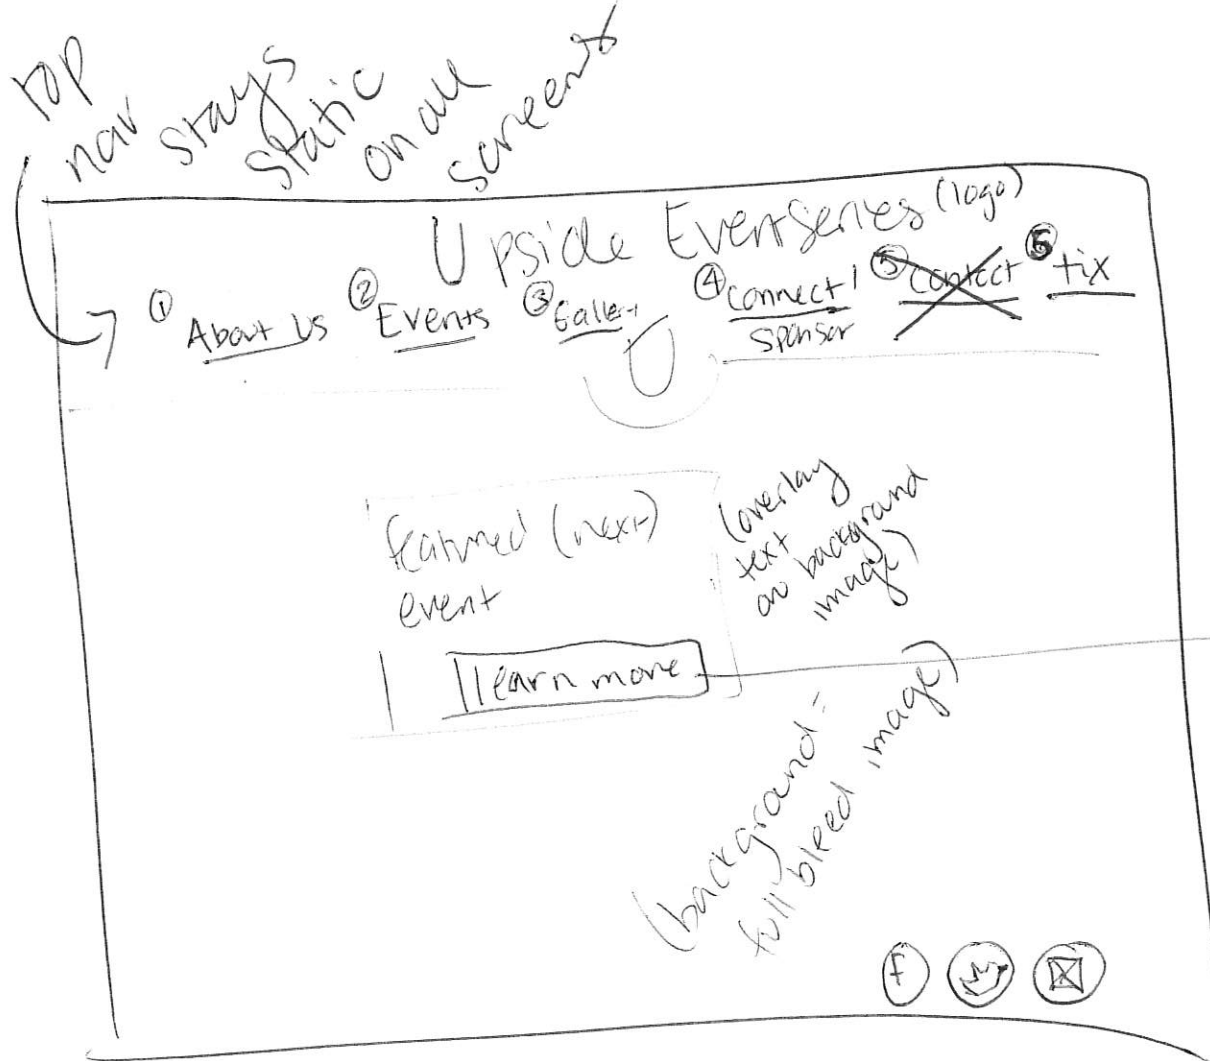 top
nav stays
static
on all
screens
Upside Event Series (logo)
① About Us ② Events ③ Gallery ④ Connect / ⑤ Contact ⑥ tix
Sponsor
U
featured (next)
event
learn more
(overlay
text
on background
image)
(background =
full bleed image)
f